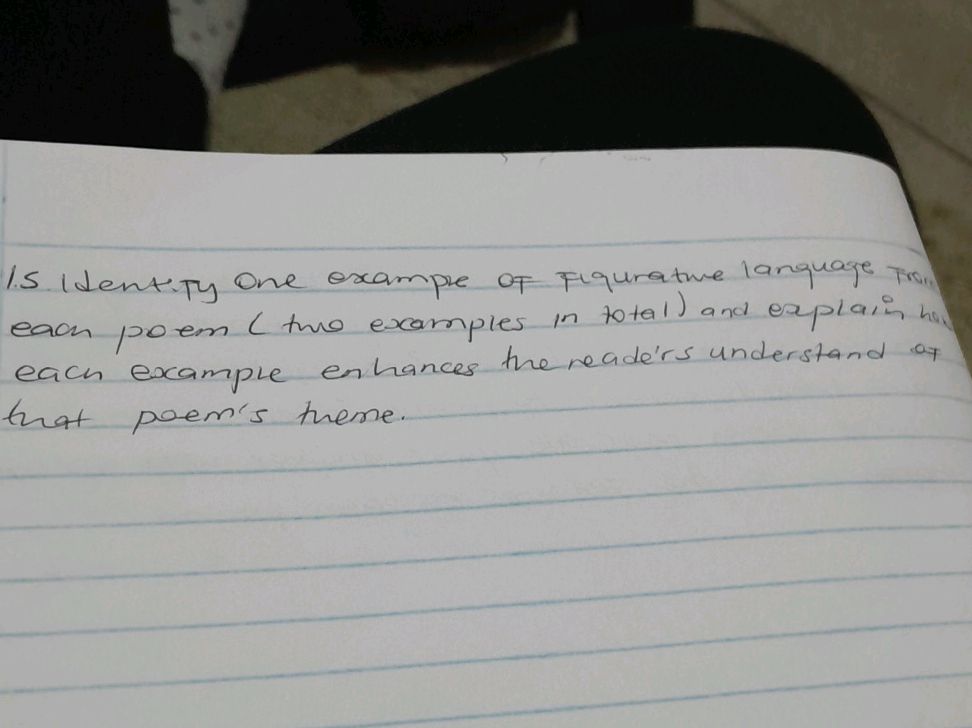 1.5 Identify one exampe of Figurative language From
each poem (two examples in total) and explain how
each example enhances the reader's understand of
that poem's theme.